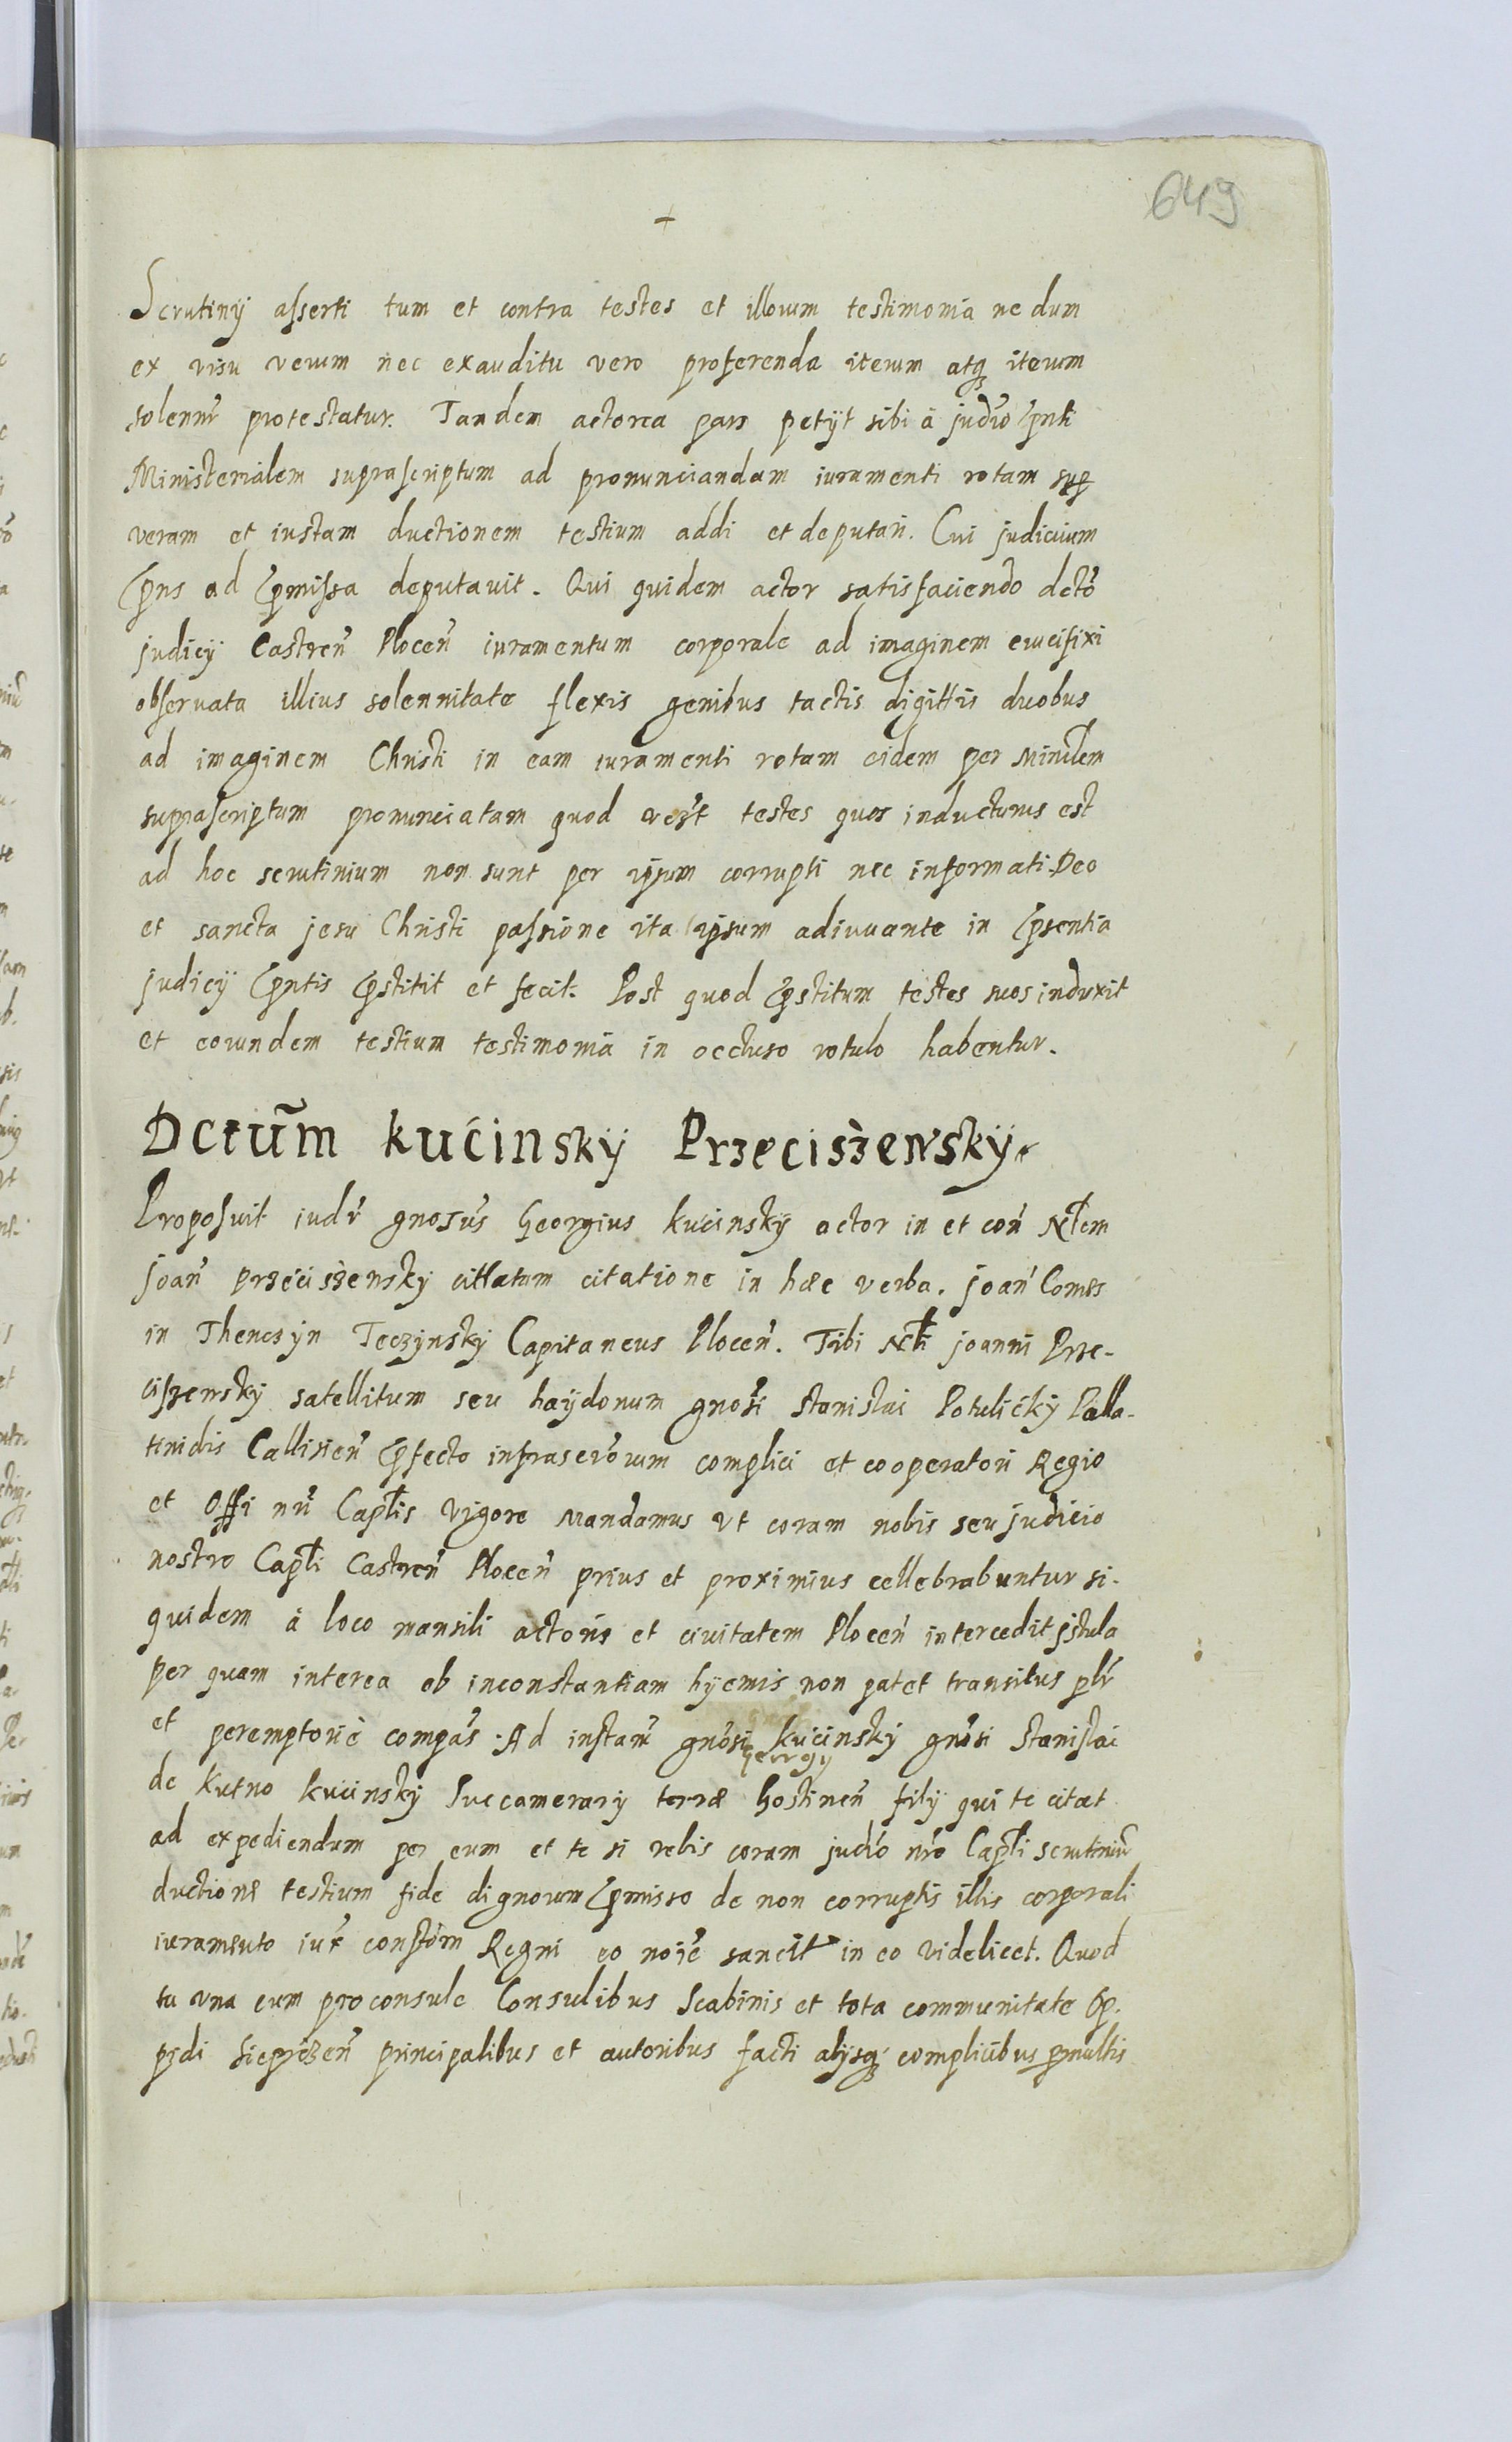 649
+
Scrutinÿ aſserti tum et contra testes et illorum testimonia ne dum
ex visu verum nec exauditu vero proferenda iterum atq iterum
solennr protestatur. Tandem actorea pars petÿt sibi à judio pnti
Ministerialem supraſcriptum ad pronunciandam iuramenti rotam sup
veram et iustam ductionem testium addi et deputari. Cui judicium
pns ad pmiſsa deputauit. Qui quidem actor satisfaciendo decto
judicÿ Castren Plocen iuramentum corporale ad imaginem crucifixi
obſeruata illius solennitate flexis genibus tactis digittis duobus
ad imaginem Christi in eam iuramenti rotam eidem per Minrlem
supraſcriptum pronunciatam quod testes quos inducturus est
ad hoc scrutinium non sunt per ipsum corrupti nec informati Deo
et sancta jesu Christi paſsione ita ipsum adiuuante in psentia
judicÿ pntis pstitit et fecit. Post quod pstitum testes suos induxit
et eorundem testium testimonia in occluso rotulo habentur.
Dctum kucinskÿ Przeciszewskÿ
Propoſuit iudr gnosus Georgius kucinskÿ actor in et con Nlem
joan przeciszewskÿ cittatum citatione in hæc verba. joan Comes
in Thenczÿn Teczÿnskÿ Capitaneus Plocen. Tibi Nli joanni Prze-
ciszewskÿ satellitum seu haÿdonum gnosi Stanislai Potulickÿ Palla-
tinidis Callisien pfecto infrascrorum complici et cooperatori Regio
et Offi nri Caplis vigore Mandamus vt coram nobis seu judicio
nostro Capli Castren Plocen prius et proximius cellebrabuntur si-
quidem à loco mansili actoris et ciuitatem Plocen intercedit jstula
per quam interea ob inconstantiam hÿemis non patet transitus plr
et peremptorie compas. Ad instam gnosi Georgÿ kucinskÿ gnosi Stanislai
de Kutno kucinskÿ Succamerarÿ terræ Gostinen filÿ qui te citat
ad expediendum per eum et te si vebis coram judio nro Capli scrutinium
ductione testium fide dignorum pmisso de non corruptis illis corporali
iuramento iux constom Regni eo noie sancit in eo videlicet. Quod
tu vna cum proconsule Consulibus Scabinis et tota communitate Op-
pidi principalibus et autoribus facti alÿsq complicibus pmultis